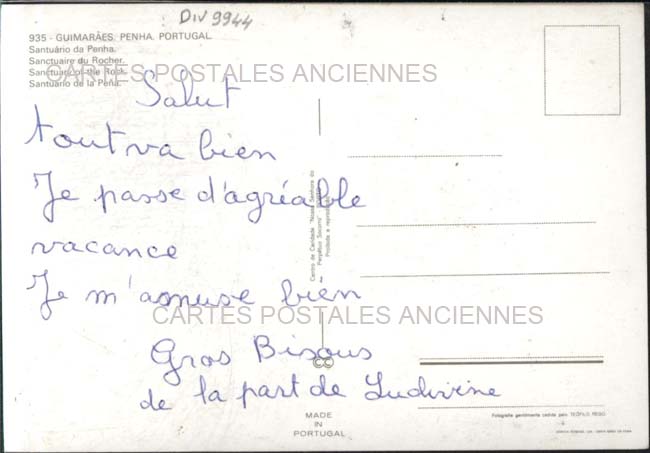 DIV 9944
935 - GUIMARÃES. PENHA. PORTUGAL
Santuário da Penha.
Sanctuaire du Rocher.
Sanctuary of the Rock.
Santuario de la Peña.
CARTES POSTALES ANCIENNES
Salut
tout va bien
Je passe d'agréable
vacance
Je m'amuse bien
Gros Bisous
de la part de Ludivine
CARTES POSTALES ANCIENNES
Centro de Caridade "Nossa Senhora do
Perpétuo Socorro"
Proibida a reprodução
MADE
IN
PORTUGAL
Fotografia gentilmente cedida pelo TEÓFILO REGO